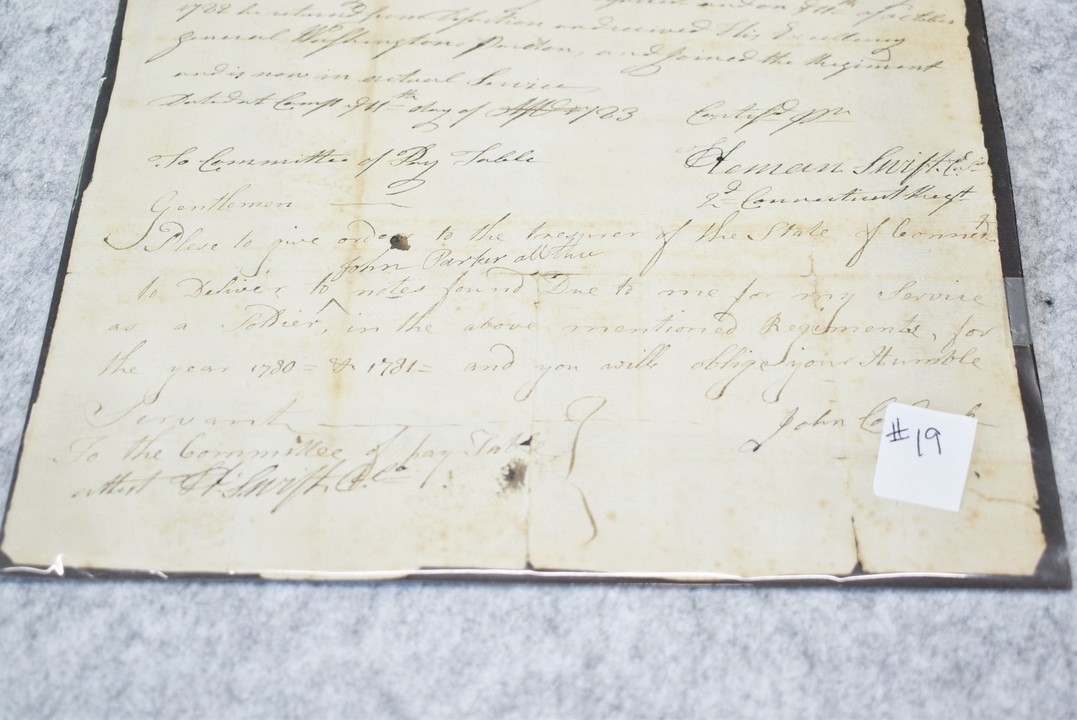 1782 he returned from desertion and received His Excelency
general Washingtons Pardon, and Joined the Regiment
and is now in actual Service
Dated at Camp 11th day of 1783 Certifd
To Committee of Pay Table Heman Swift Col
2d Connecticut Regt
Gentlemen
Please to give order to the treasurer of the State of Connect
John Parker all the
to Deliver to ^ notes found Due to me for my Service
as a Soldier, in the above mentioned Regiments, for
the year 1780 = & 1781 = and you will oblige your Humble
Servant John
To the Committee of pay Table
attest H Swift Col
#19